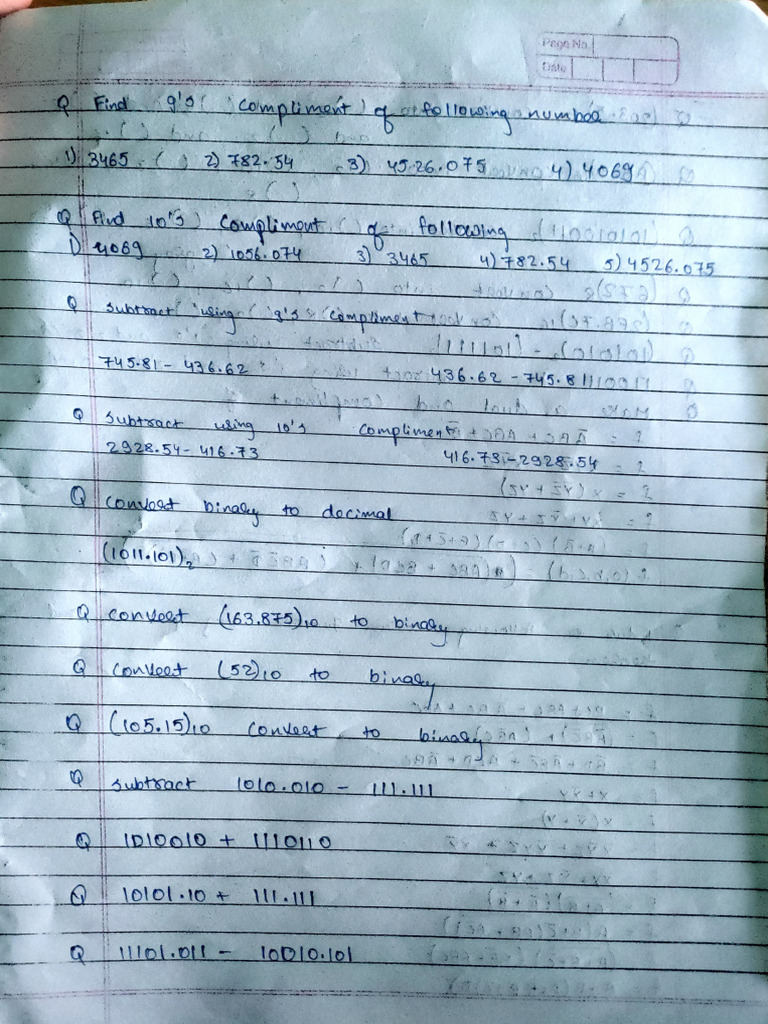 Page No.
Date
Q Find 9's compliment of following number
1) 3465 2) 782.54 3) 4526.075 4) 4069
Q Find 10's compliment of following
1) 4069 2) 1056.074 3) 3465 4) 782.54 5) 4526.075
Q subtract using 9's compliment
745.81 - 436.62 436.62 - 745.81
Q subtract using 10's compliment
2928.54 - 416.73 416.73 - 2928.54
Q convert binary to decimal
(1011.101)₂
Q convert (163.875)₁₀ to binary
Q convert (52)₁₀ to binary
Q (105.15)₁₀ convert to binary
Q subtract 1010.010 - 111.111
Q 1010010 + 1110110
Q 10101.10 + 111.111
Q 11101.011 - 10010.101